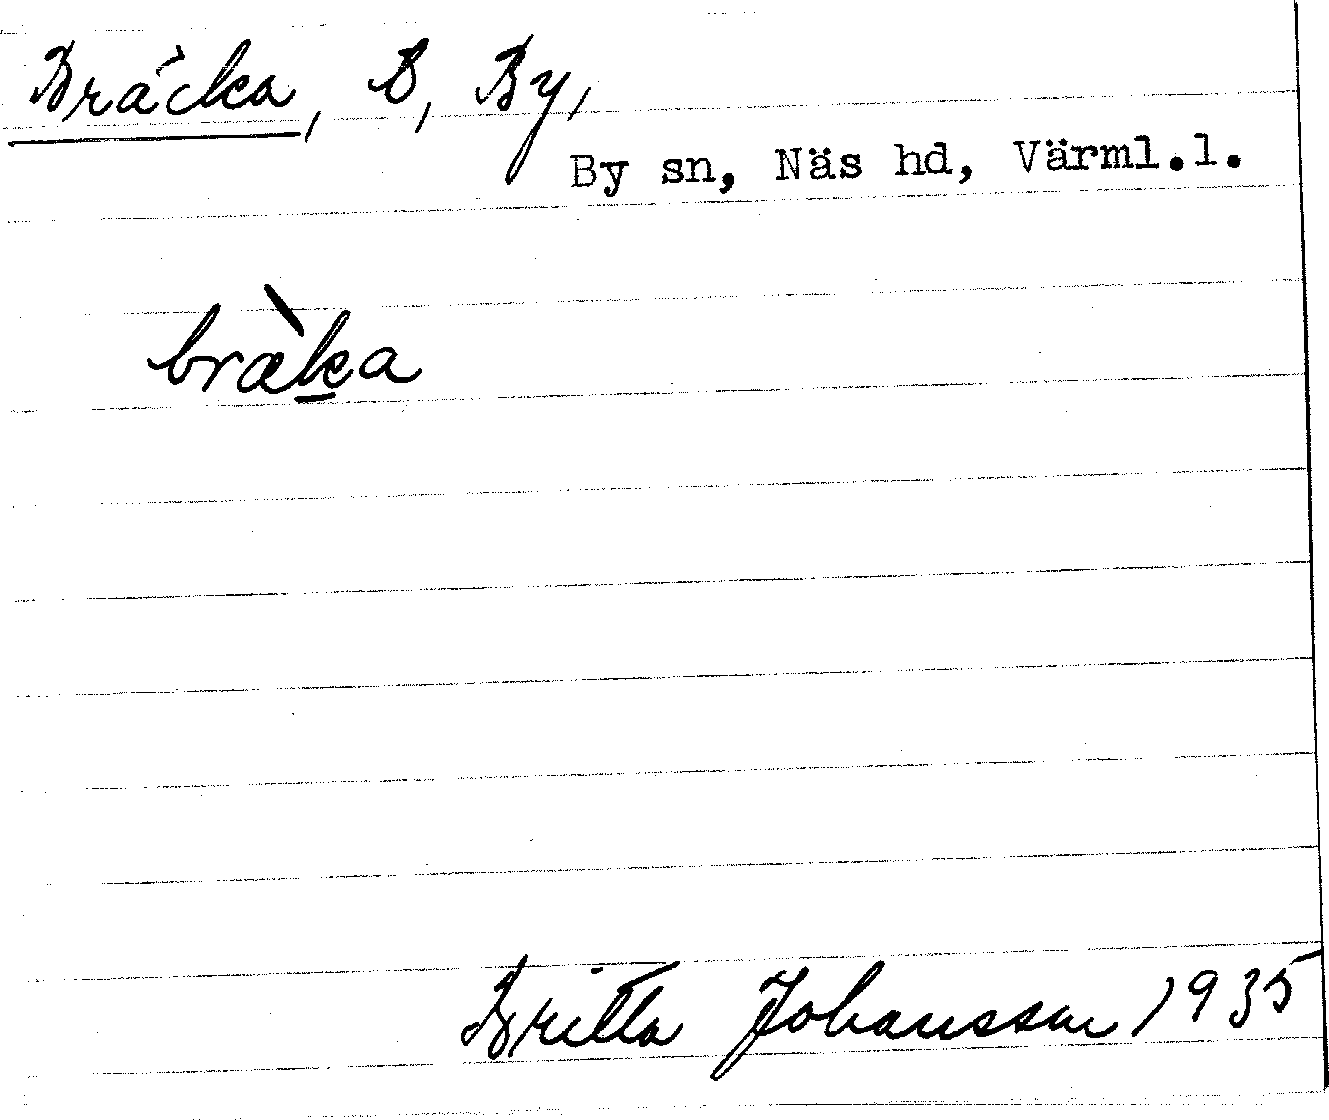 Bräcka, B, By,
By sn, Näs hd, Värml.l.
bræ̀ka
Britta Johansson 1935